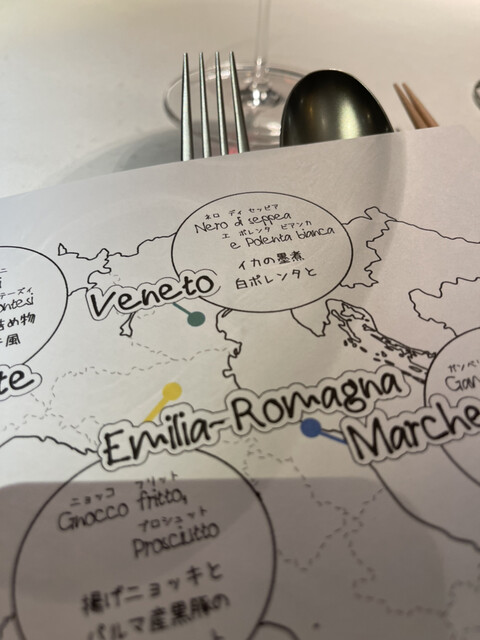 ネロ ディ セッピア
Nero di seppea
エ ポレンタ ビアンカ
e Polenta bianca
イカの墨煮
白ポレンタと
Veneto
ontesi
め物
風
te
Emilia-Romagna
Marche
ニョッコ フリット
Gnocco fritto,
プロシュット
Prosciutto
揚げニョッキと
パルマ産黒豚の